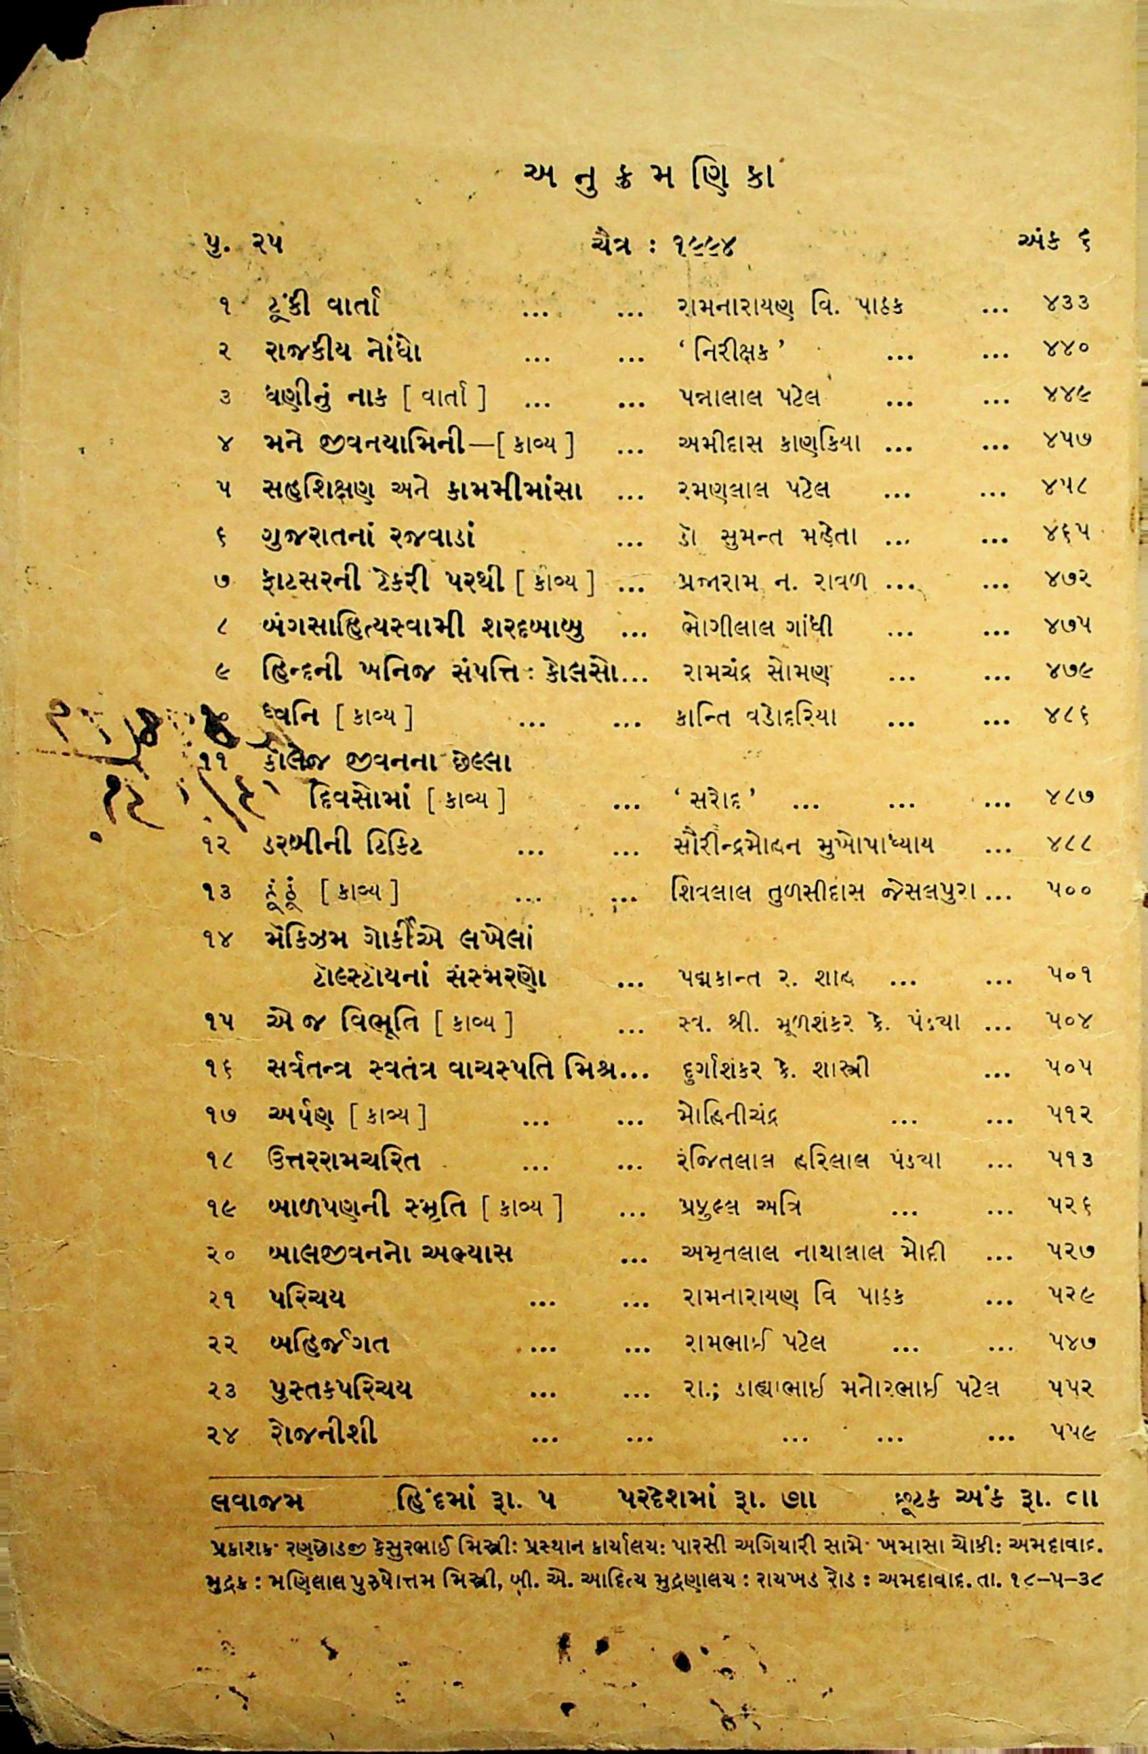 અ નુ ક્ર મ ણિ કા
પુ. ૨૫ ચૈત્ર : ૧૯૯૪ અંક ૬
૧ ટૂંકી વાર્તા ... ... રામનારાયણ વિ. પાઠક ... ૪૩૩
૨ રાજકીય નોંધો ... ... ‘ નિરીક્ષક ’ ... ... ૪૪૦
૩ ધણીનું નાક [ વાર્તા ] ... ... પન્નાલાલ પટેલ ... ... ૪૪૯
૪ મને જીવનયામિની—[ કાવ્ય ] ... અમીદાસ કાણકિયા ... ... ૪૫૭
૫ સહશિક્ષણ અને કામમીમાંસા ... રમણલાલ પટેલ ... ... ૪૫૮
૬ ગુજરાતનાં રજવાડાં ... ડૉ સુમન્ત મહેતા ... ... ૪૬૫
૭ ફાટસરની ટેકરી પરથી [ કાવ્ય ] ... પ્રજારામ ન. રાવળ ... ... ૪૭૨
૮ બંગસાહિત્યસ્વામી શરદબાબુ ... ભોગીલાલ ગાંધી ... ... ૪૭૫
૯ હિન્દની ખનિજ સંપત્તિ : કોલસો... રામચંદ્ર સોમણ ... ... ૪૭૯
૧૦ ધ્વનિ [ કાવ્ય ] ... ... કાન્તિ વડોદરિયા ... ... ૪૮૬
૧૧ કૉલેજ જીવનના છેલ્લા
દિવસોમાં [ કાવ્ય ] ... ‘ સરોદ ’ ... ... ... ૪૮૭
૧૨ ડરબીની ટિકિટ ... ... સૌરીન્દ્રમોહન મુખોપાધ્યાય ... ૪૮૮
૧૩ ઠૂંઠું [ કાવ્ય ] ... ... શિવલાલ તુળસીદાસ જેસલપુરા ... ૫૦૦
૧૪ મૅક્ઝિમ ગોર્કીએ લખેલાં
ટૉલ્સ્ટૉયનાં સંસ્મરણો ... પદ્મકાન્ત ર. શાહ ... ... ૫૦૧
૧૫ એ જ વિભૂતિ [ કાવ્ય ] ... સ્વ. શ્રી. મૂળશંકર કે. પંડ્યા ... ૫૦૪
૧૬ સર્વતન્ત્ર સ્વતંત્ર વાચસ્પતિ મિશ્ર... દુર્ગાશંકર કે. શાસ્ત્રી ... ૫૦૫
૧૭ અર્પણ [ કાવ્ય ] ... ... મોહિનીચંદ્ર ... ... ૫૧૨
૧૮ ઉત્તરરામચરિત ... ... રંજિતલાલ હરિલાલ પંડ્યા ... ૫૧૩
૧૯ બાળપણની સ્મૃતિ [ કાવ્ય ] ... પ્રફુલ્લ અત્રિ ... ... ૫૨૬
૨૦ બાલજીવનનો અભ્યાસ ... અમૃતલાલ નાથાલાલ મોદી ... ૫૨૭
૨૧ પરિચય ... ... રામનારાયણ વિ પાઠક ... ૫૨૯
૨૨ બહિર્જગત ... ... રામભાઈ પટેલ ... ... ૫૪૭
૨૩ પુસ્તકપરિચય ... ... રા.; ડાહ્યાભાઈ મનોરભાઈ પટેલ ૫૫૨
૨૪ રોજનીશી ... ... ... ... ... ૫૫૯
લવાજમ હિંદમાં રૂા. ૫ પરદેશમાં રૂા. ૭ાા છૂટક અંક રૂા. ૮ાા
પ્રકાશક રણછોડજી કેસુરભાઈ મિસ્ત્રી: પ્રસ્થાન કાર્યાલય: પારસી અગિયારી સામે ખમાસા ચોકી: અમદાવાદ.
મુદ્રક : મણિલાલ પુરુષોત્તમ મિસ્ત્રી, બી. એ. આદિત્ય મુદ્રણાલય : રાયખડ રોડ : અમદાવાદ. તા. ૧૮–૫–૩૮